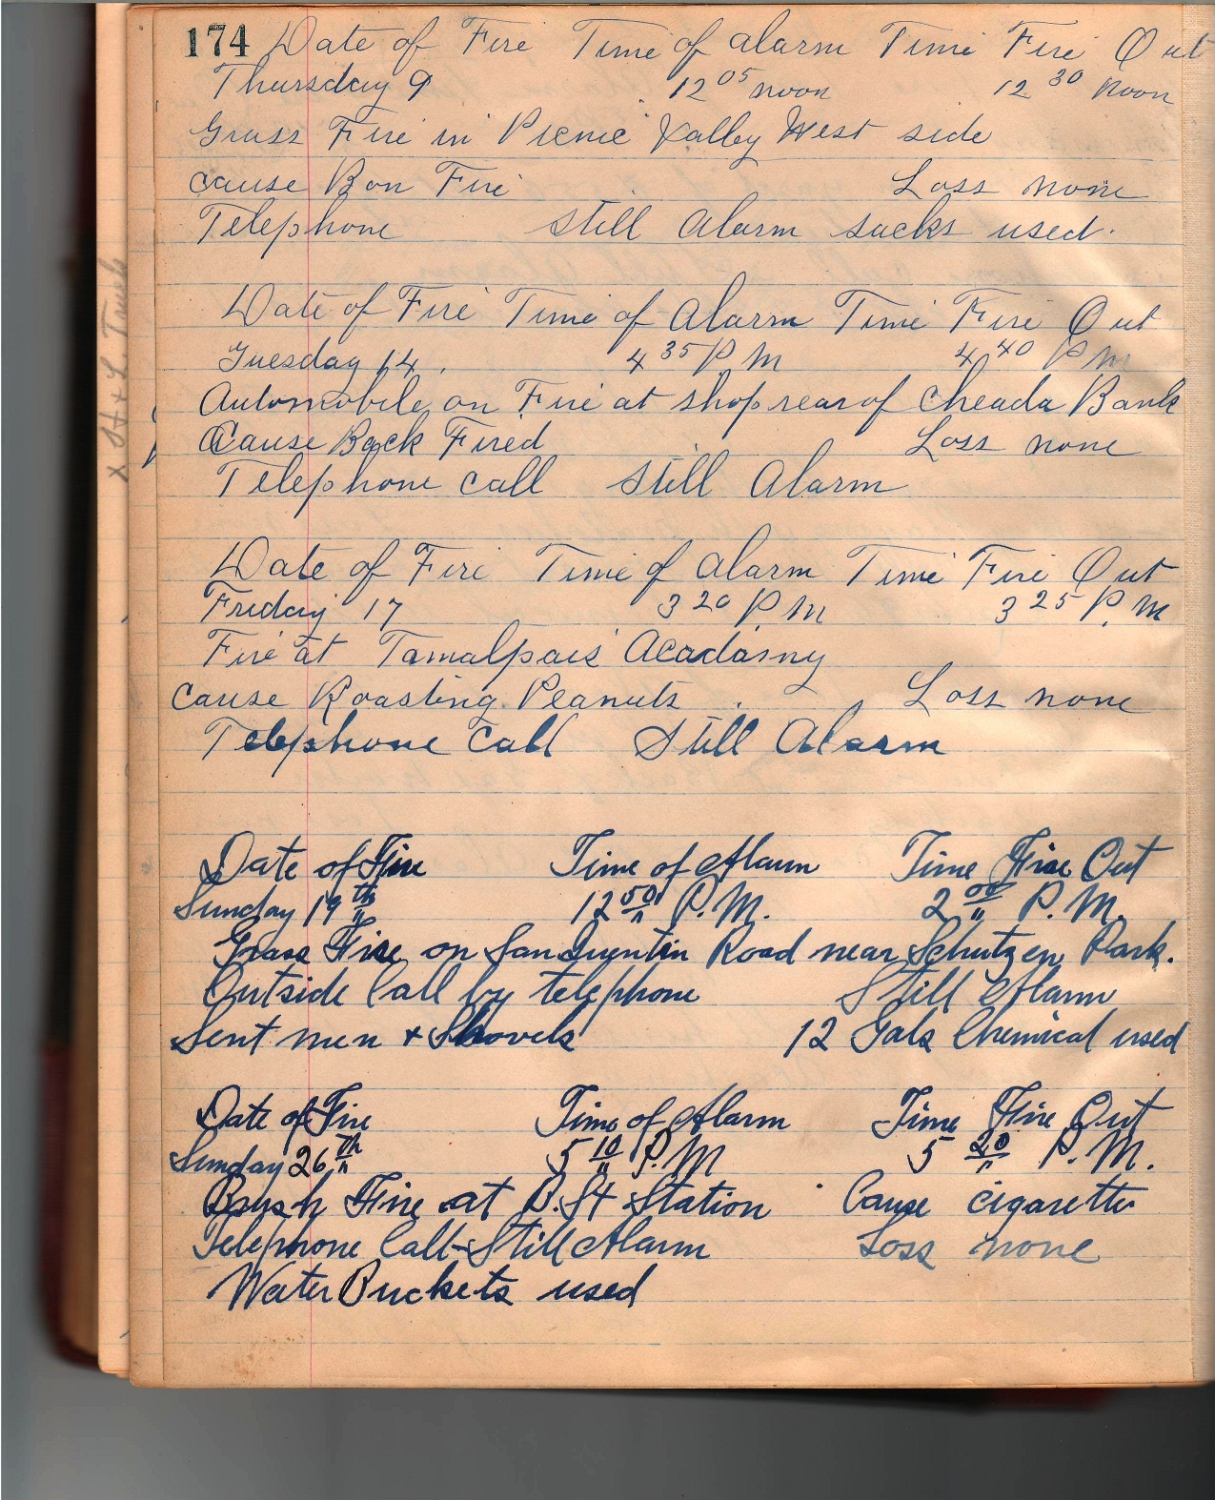 174 Date of Fire Time of alarm Time Fire Out
Thursday 9 12 05 noon 12 30 noon
Grass Fire in Picnic Valley West side
cause Bon Fire Loss none
Telephone still alarm sacks used.
Date of Fire Time of alarm Time Fire Out
Tuesday 14. 4 35 P M 4 40 P M
Automobile on Fire at shop rear of Cheada Bank
Cause Back Fired Loss none
Telephone call still alarm
Date of Fire Time of alarm Time Fire Out
Friday 17 3 20 P. M 3 25 P. M
Fire at Tamalpais Acadamy
cause Roasting Peanuts. Loss none
Telephone call Still Alarm
Date of Fire Time of Alarm Time Fire Out
Sunday 19th 12 50 P.M. 2 00 P.M.
Grass Fire on San Quentin Road near Schutzen Park.
Outside Call by telephone Still Alarm
Sent men + Shovels 12 Gals Chemical used
Date of Fire Time of Alarm Time Fire Out
Sunday 26th 5 10 P.M 5 20 P.M.
Brush Fire at B. St Station Cause cigarette
Telephone Call-Still Alarm Loss none
Water Buckets used
x H + L Truck